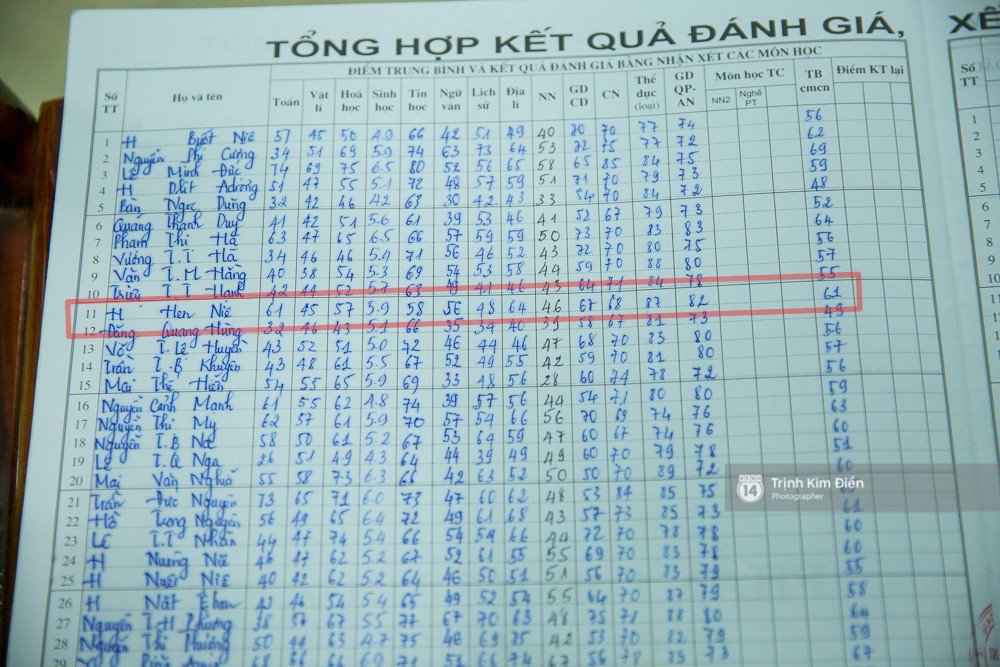 TỔNG HỢP KẾT QUẢ ĐÁNH GIÁ, XẾ
ĐIỂM TRUNG BÌNH VÀ KẾT QUẢ ĐÁNH GIÁ BẰNG NHẬN XÉT CÁC MÔN HỌC
Số TT Họ và tên Toán Vật lí Hoá học Sinh học Tin học Ngữ văn Lịch sử Địa lí NN GD CD CN Thể dục (loại) GD QP-AN Môn học TC NN2 Nghề PT TB cmcn Điểm KT lại Số TT
1 H Buốt Niê 57 45 50 4.0 66 42 51 49 40 70 70 77 74 56 1
2 Nguyễn Phi Cường 34 51 69 5.9 74 63 73 64 53 72 75 77 72 62 2
3 Lê Minh Đức 74 69 75 6.5 80 52 56 65 58 65 85 84 75 69 3
4 H Dlit Adrơng 51 47 55 5.1 72 48 57 59 51 71 70 79 73 59 4
5 Bàn Ngọc Dũng 32 42 46 42 63 30 42 43 33 54 70 84 72 48 5
6 Quang Thanh Duy 41 42 51 5.6 61 39 53 46 41 52 67 79 73 52 6
7 Phạm Thi Hà 63 47 65 6.5 66 57 59 59 50 73 70 83 83 64 7
8 Vương T.T Hà 34 46 46 5.4 71 56 46 52 43 72 70 80 75 56 8
9 Văn T.M Hằng 40 38 54 5.3 69 54 53 58 44 59 70 88 80 57 9
10 Triệu T.T Hạnh 42 44 52 5.7 63 41 46 43 64 71 84 78 55 10
11 H Hen Niê 61 45 57 5.9 58 56 48 64 46 67 68 87 82 61 11
12 Đặng Quang Hùng 32 46 43 5.1 66 35 34 40 39 58 67 81 73 49 12
13 Võ T.Lê Huyền 43 52 51 5.0 72 46 44 46 47 68 70 83 80 56 13
14 Trần T.B Khuyên 43 48 61 5.5 67 52 49 55 42 59 70 81 80 57 14
15 Mai Thế Hiển 54 55 65 5.9 69 33 48 56 28 60 71 78 72 56 15
16 Nguyễn Cảnh Mạnh 61 55 62 4.8 74 39 57 56 44 54 71 80 80 59 16
17 Nguyễn Thi My 62 57 61 5.9 70 57 54 66 56 70 69 74 76 63 17
18 Nguyễn T.B Na 58 50 61 5.2 67 53 64 59 47 60 67 74 76 60 18
19 Lê T.Q Nga 26 51 49 4.3 64 44 39 49 49 60 70 79 78 51 19
20 Mai Văn Nghĩa 55 58 73 6.3 66 42 63 52 50 50 70 89 72 60 20
21 Trần Đức Nguyên 73 65 71 6.0 73 47 60 62 48 53 84 85 75 21
22 Hồ Trọng Nguyên 56 49 65 6.4 72 49 61 68 43 57 73 85 73 61 22
23 Lê T.T Nhân 44 47 74 5.4 66 54 52 66 44 72 70 78 78 60 23
24 H Nương Niê 46 47 62 5.2 67 52 61 55 55 69 70 83 78 60 24
25 H Nuôr Niê 40 42 62 5.2 64 46 50 51 51 56 70 83 79 55 25
26 H Năt Êban 43 46 54 5.4 65 49 52 54 55 64 70 87 79 58 26
27 Nguyễn T.H Phương 38 57 67 5.5 77 67 70 63 48 75 71 88 80 64 27
28 Nguyễn Thi Phương 50 44 63 4.7 75 46 69 75 42 53 70 82 79 59 28
29 68 66 66 71 51 66 74 67 29
14 Trịnh Kim Điền
Photographer